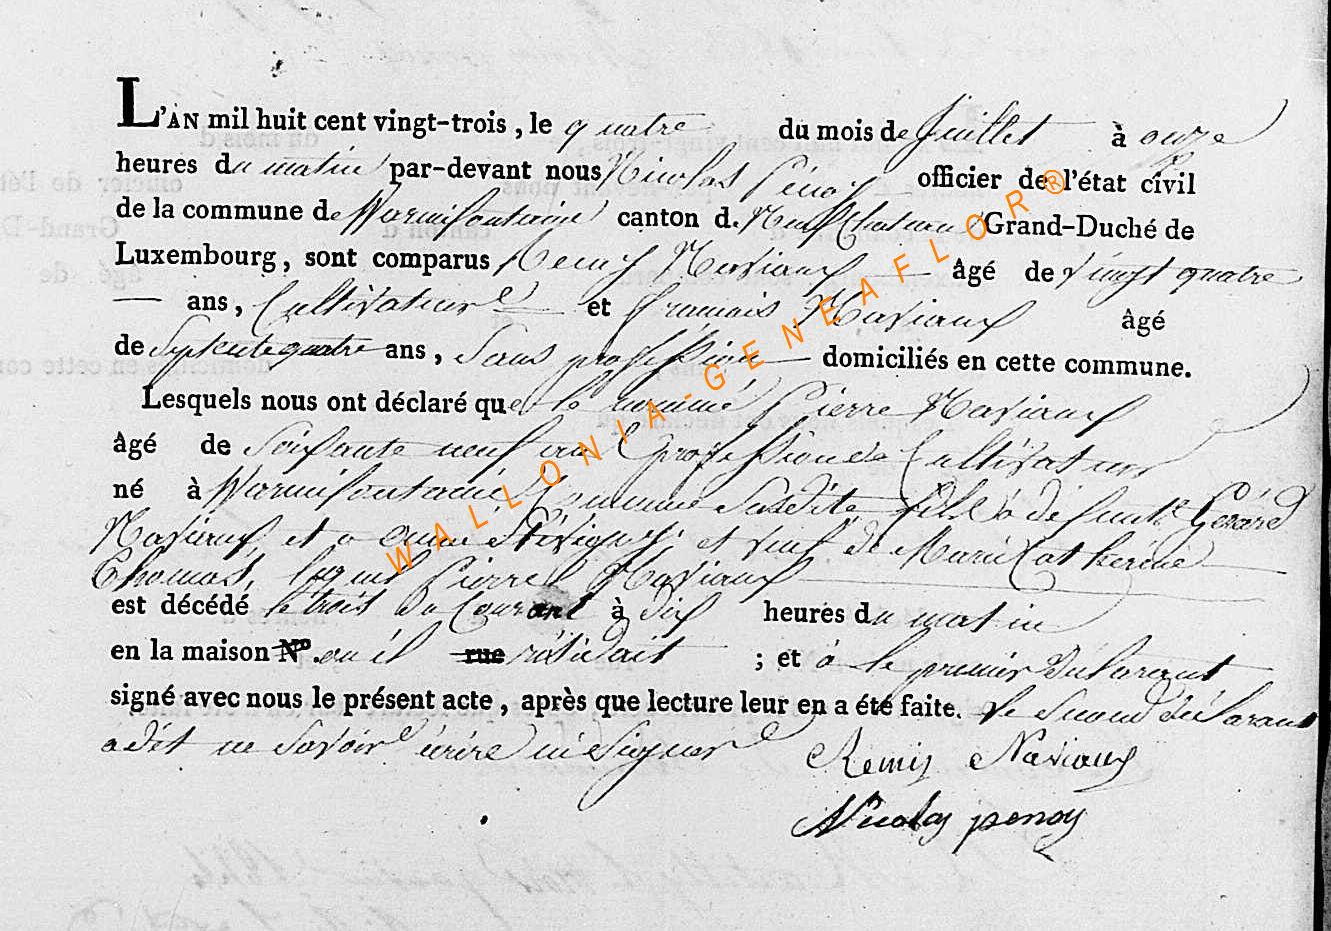 L'AN mil huit cent vingt-trois, le quatre du mois de Juillet à onze
heures du matin par-devant nous Nicolas Penoy officier de l'état civil
de la commune de Warmifontaine canton de Neufchateau Grand-Duché de
Luxembourg, sont comparus Remy Naviaux âgé de vingt quatre
ans, Cultivateur et francois Naviaux âgé
de Septente quatre ans, Sans profession domiciliés en cette commune.
Lesquels nous ont déclaré que le nommé Pierre Naviaux
âgé de Soissante neuf ans profession de Cultivateur
né à Warmifontaine Commune Susdite fils à défunt Gérard
Naviaux et a et veuf de Marie Catherine
Thomas, lequel Pierre Naviaux
est décédé le trois du Courant à dix heures du matin
en la maison N° ou il rue résidait ; et à le premier déclarant
signé avec nous le présent acte, après que lecture leur en a été faite. le second déclarant
a dit ne savoir écrire ni signer
Remis Naviaux
Nicolas penoy
WALLONIA-GENEAFLOR®